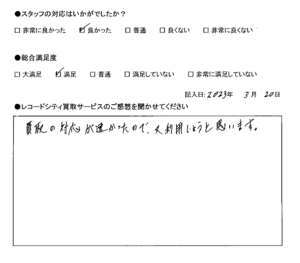 ●スタッフの対応はいかがでしたか?
□ 非常に良かった ☑ 良かった □ 普通 □ 良くない □ 非常に良くない
●総合満足度
□ 大満足 ☑ 満足 □ 普通 □ 満足していない □ 非常に満足していない
記入日: 2023年 3月 20日
●レコードシティ買取サービスのご感想を聞かせてください
買取の対応が速かったので、又利用しようと思います。